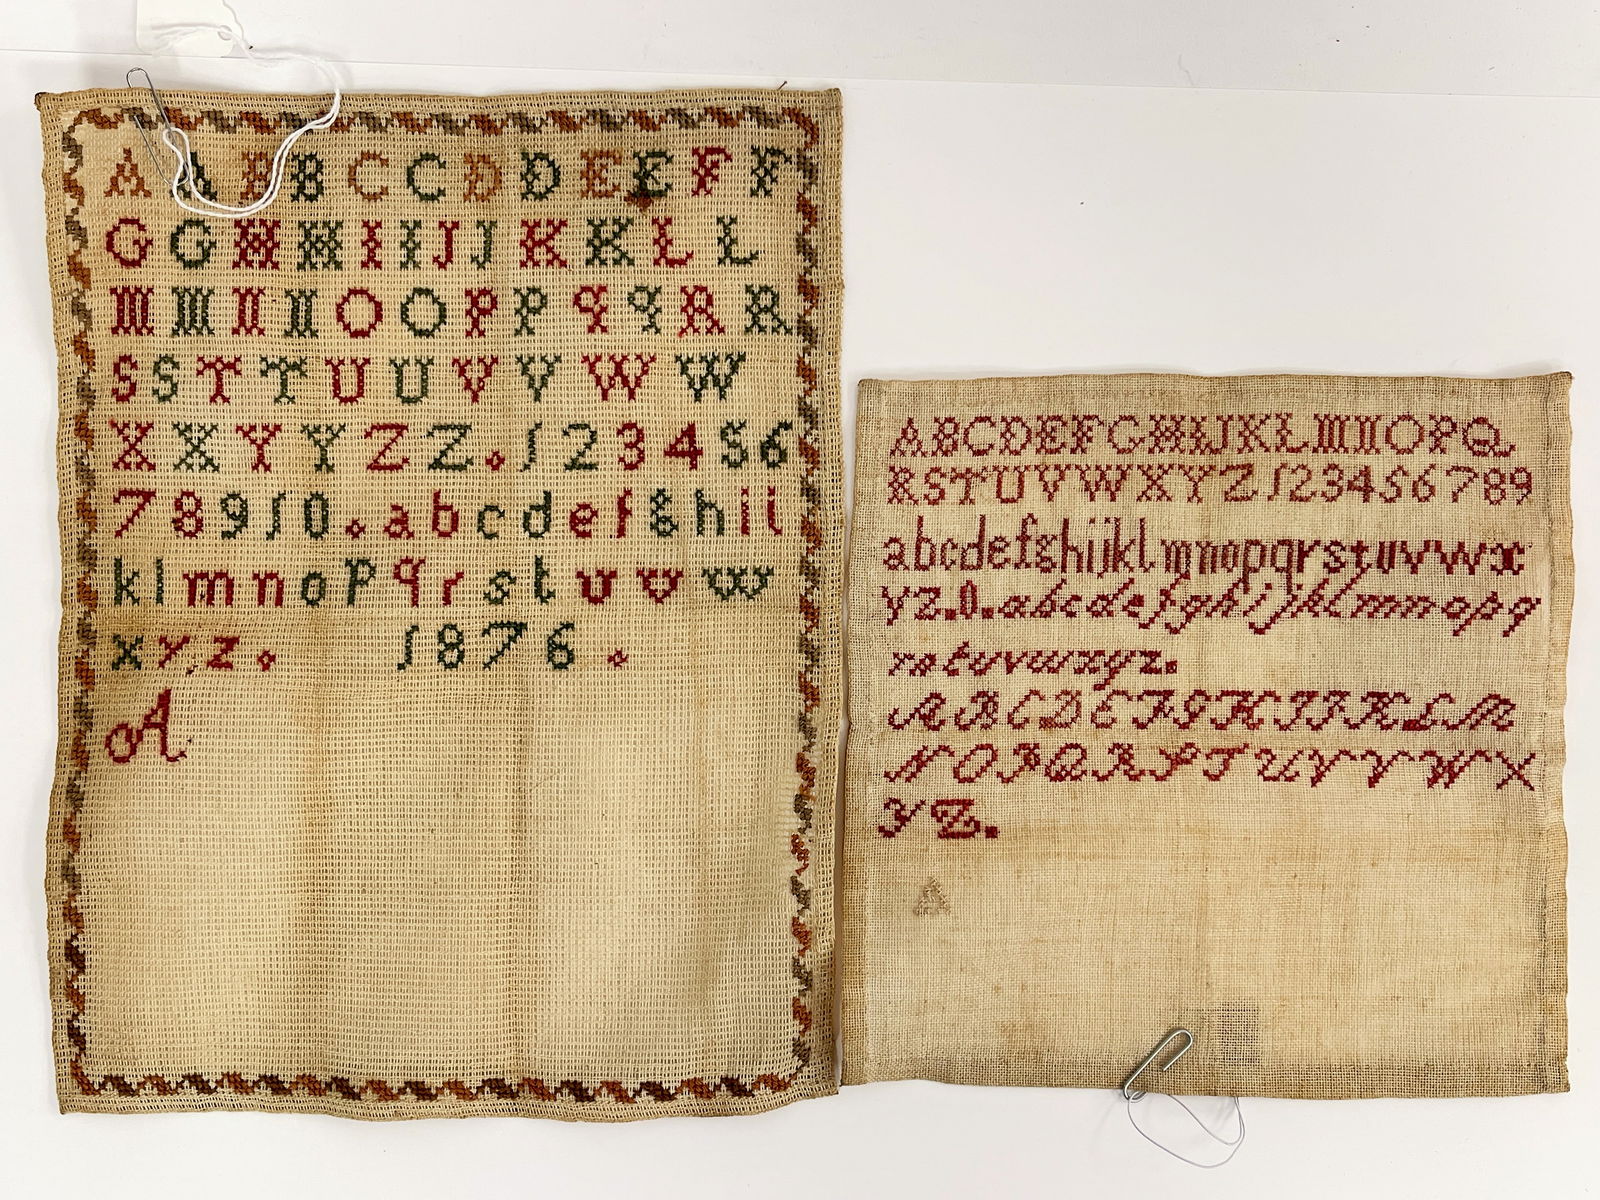 A A B B C C D D E E F F
G G H H I I J J K K L L
M M N N O O P P q q R R
S S T T U U V V W W
X X Y Y Z Z . 1 2 3 4 5 6
7 8 9 1 0 . a b c d e f g h i j
k l m n o p q r s t u v w
x y z . 1876 .
A
ABCDEFGHIJKLMNOPQ
RSTUVWXYZ123456789
abcdefghijklmnopqrstuvwx
yz.0.abcdefghijklmnopq
rstuvwxyz.
ABCDEFGHIJKLM
NOPQRSTUVVWX
YZ.
A